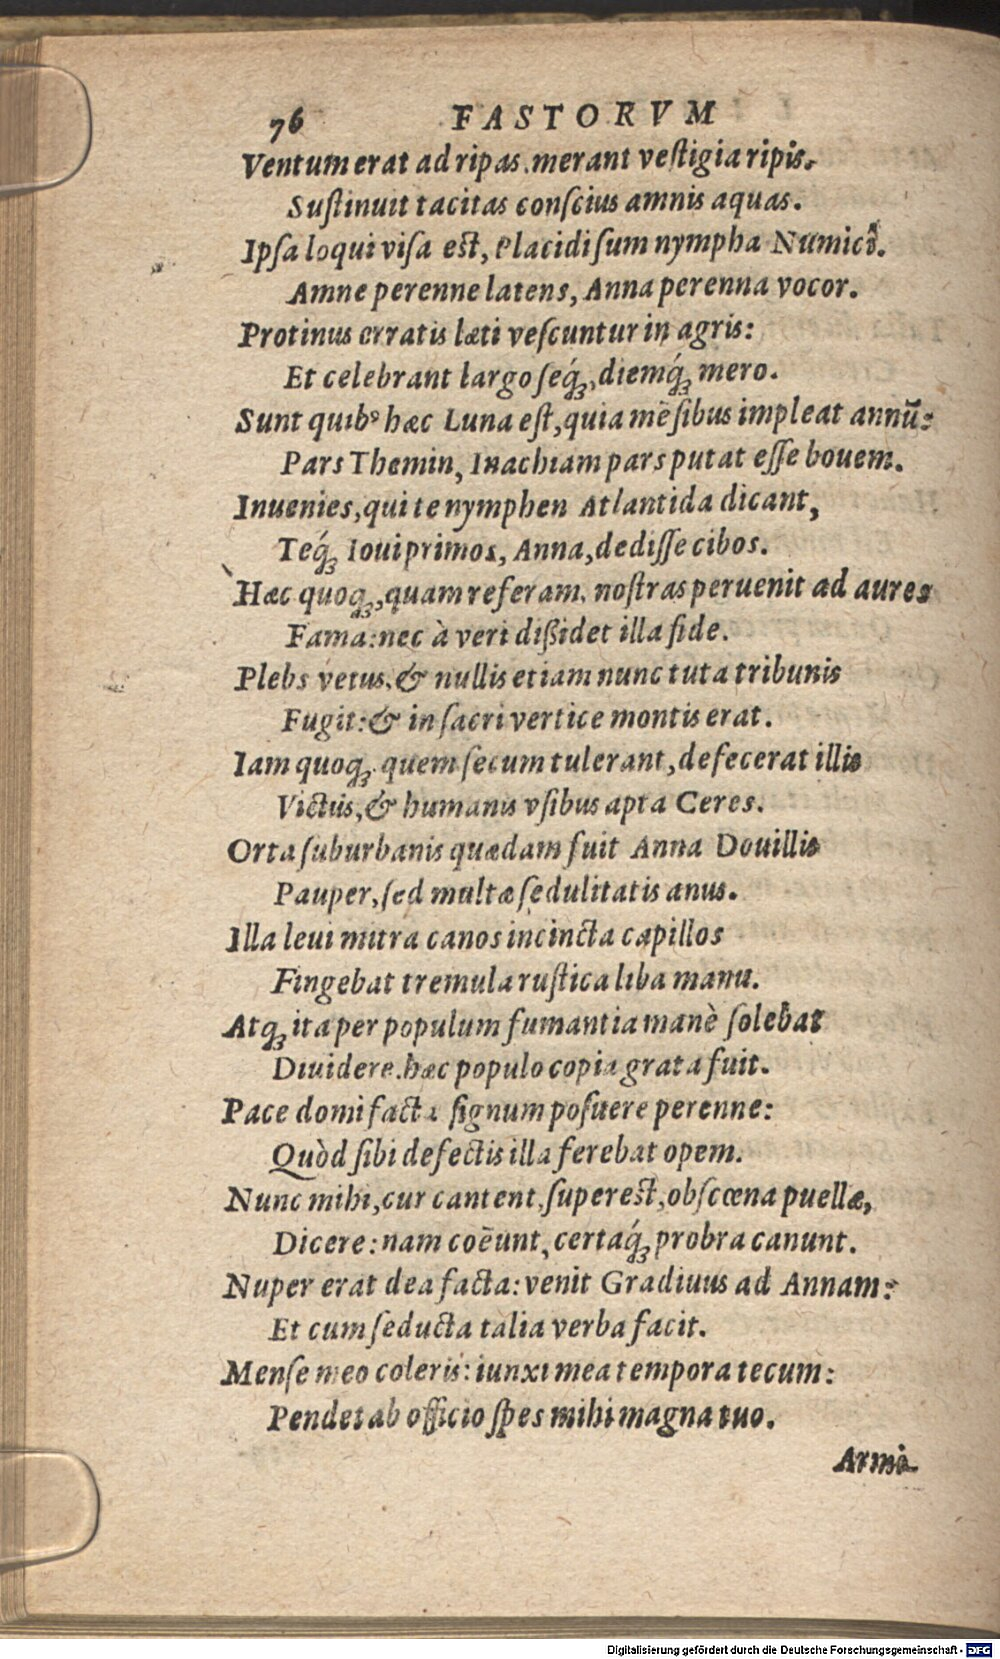 76 FASTORVM
Ventum erat ad ripas. inerant vestigia ripis.
Sustinuit tacitas conscius amnis aquas.
Ipsa loqui visa est, Placidi sum nympha Numici.
Amne perenne latens, Anna perenna vocor.
Protinus erratis læti vescuntur in agris:
Et celebrant largo seq́ꝫ, diemq́ꝫ mero.
Sunt quibꝰ hæc Luna est, quia mēsibus impleat annū:
Pars Themin, Inachiam pars putat esse bouem.
Inuenies, qui te nymphen Atlantida dicant,
Teq́ꝫ Ioui primos, Anna, dedisse cibos.
Hæc quoqꝫ, quam referam, nostras peruenit ad aures
Fama: nec à veri dißidet illa fide.
Plebs vetus, & nullis etiam nunc tuta tribunis
Fugit: & in sacri vertice montis erat.
Iam quoqꝫ quem secum tulerant, defecerat illis
Victus, & humanis vsibus apta Ceres.
Orta suburbanis quædam fuit Anna Douillis
Pauper, sed multæ sedulitatis anus.
Illa leui mitra canos incincta capillos
Fingebat tremula rustica liba manu.
Atqꝫ ita per populum fumantia manè solebat
Diuidere. hæc populo copia grata fuit.
Pace domi facta signum posuere perenne:
Quòd sibi defectis illa ferebat opem.
Nunc mihi, cur cantent, superest, obscœna puellæ,
Dicere: nam coëunt, certaq́ꝫ probra canunt.
Nuper erat dea facta: venit Gradiuus ad Annam:
Et cum seducta talia verba facit.
Mense meo coleris: iunxi mea tempora tecum:
Pendet ab officio spes mihi magna tuo.
Arma
Digitalisierung gefördert durch die Deutsche Forschungsgemeinschaft - DFG